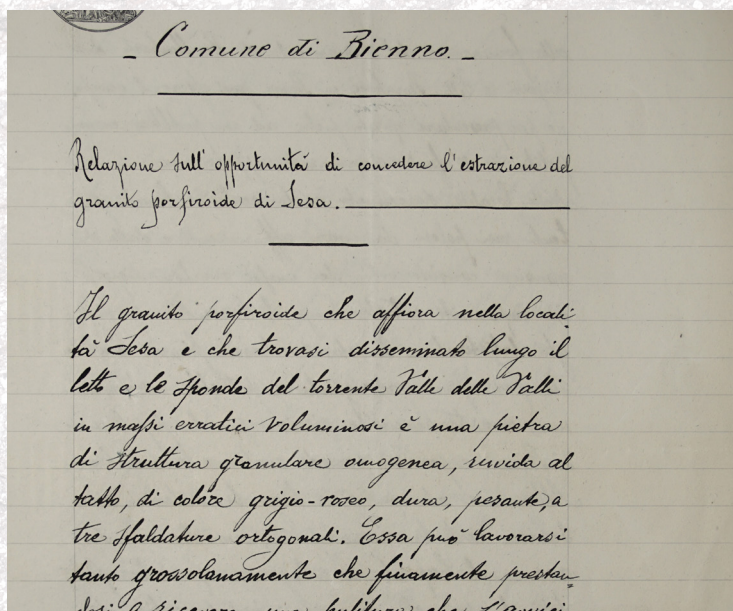 - Comune di Bienno. -
Relazione sull' opportunità di concedere l'estrazione del
granito porfiroide di Sesa.
Il granito porfiroide che affiora nella locali
tà Sesa e che trovasi disseminato lungo il
letto e le sponde del torrente Valle delle Valli
in massi erratici voluminosi è una pietra
di struttura granulare omogenea, ruvida al
tatto, di colore grigio-roseo, dura, pesante, a
tre sfaldature ortogonali. Essa può lavorarsi
tanto grossolanamente che finamente prestan=
dosi a ricevere una pulitura che